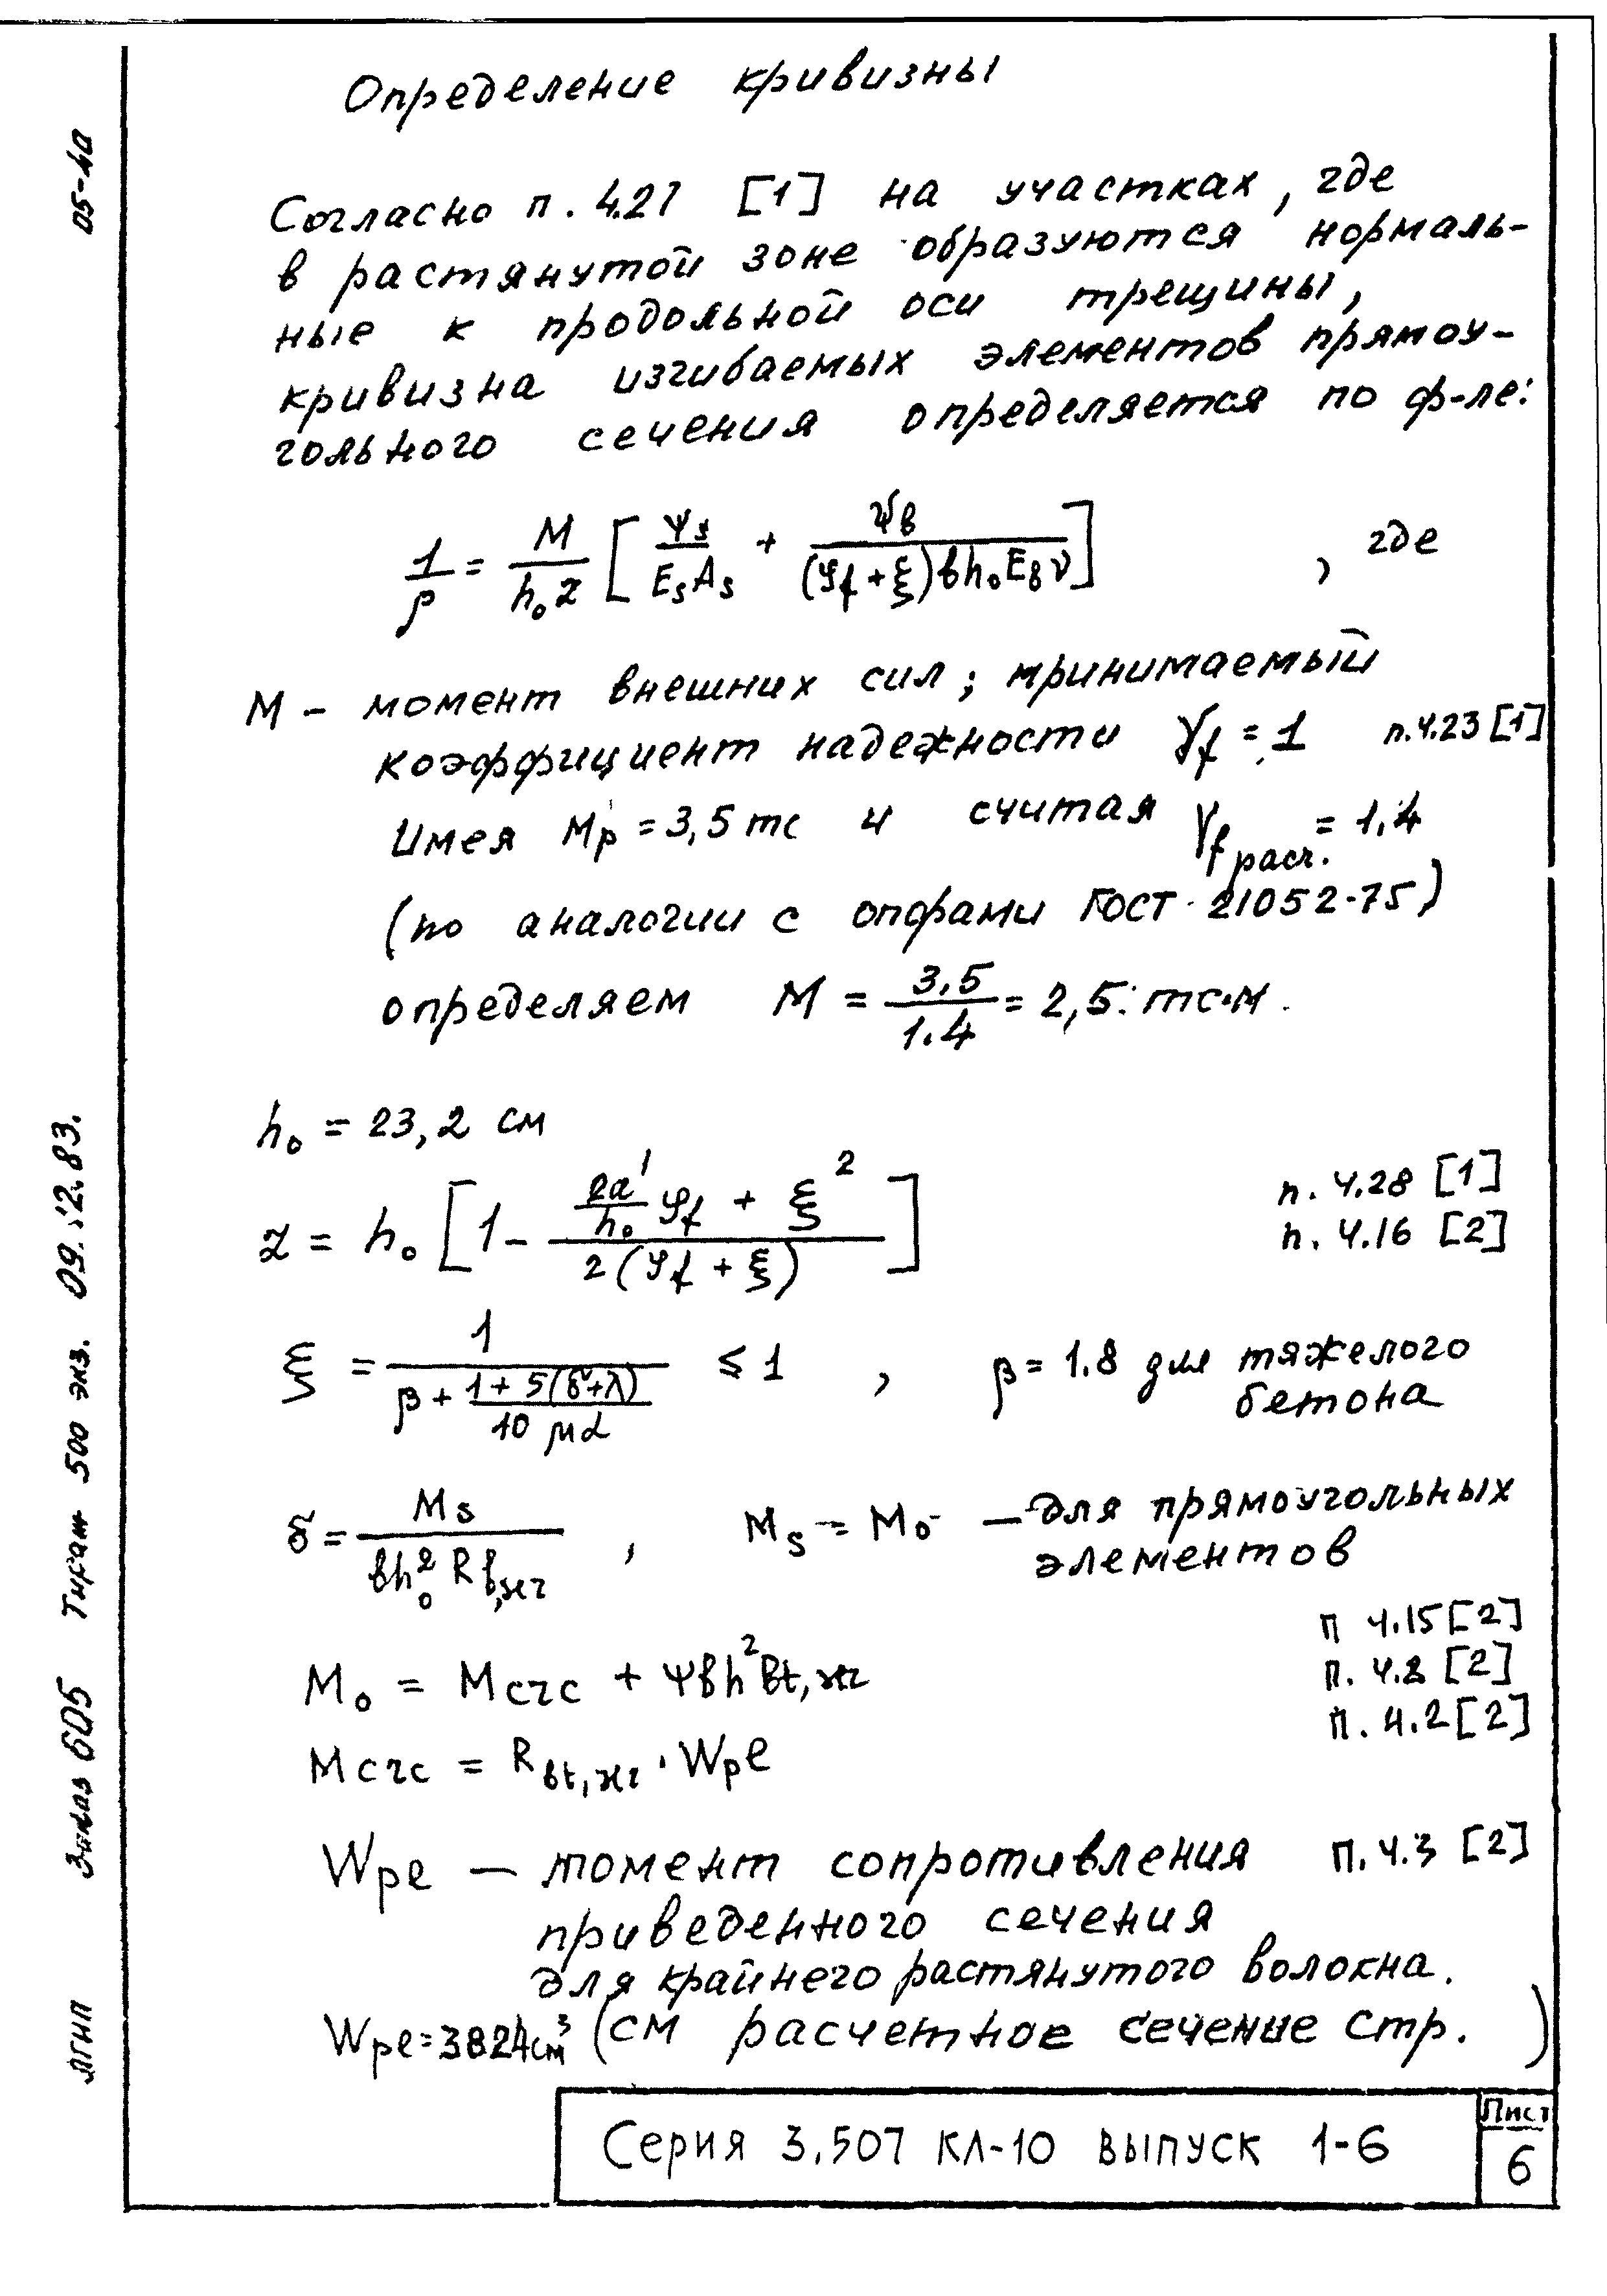 Определение кривизны
Согласно п. 4.27 [1] на участках, где
в растянутой зоне образуются нормаль-
ные к продольной оси трещины,
кривизна изгибаемых элементов прямоу-
гольного сечения определяется по ф-ле:
1/ρ = M/(h₀z) [ψs/(EsAs) + ψв/((φf+ξ)вh₀Eвν)] , где
M – момент внешних сил; принимаемый
коэффициент надежности γf = 1 п.4.23 [1]
Имея Mр = 3,5 тс и считая γf расч. = 1.4
(по аналогии с опорами ГОСТ 21052-75)
определяем M = 3,5/1.4 = 2,5 тс·м.
h₀ = 23,2 см
z = h₀ [1 - ((2a'/h₀)φf + ξ²)/(2(φf + ξ))] п. 4.28 [1]
п. 4.16 [2]
ξ = 1/(β + (1+5(δ+λ))/(10μα)) ≤ 1 , β = 1.8 для тяжелого
бетона
δ = Ms/(вh₀²Rв,нг) , Ms = M₀ — для прямоугольных
элементов
п 4.15 [2]
M₀ = Mсгс + ψвh²вt,нг п. 4.2 [2]
п. 4.2 [2]
Mсгс = Rвt,нг · Wре
Wре — момент сопротивления п. 4.3 [2]
приведенного сечения
для крайнего растянутого волокна.
Wре = 3824 см³ (см расчетное сечение стр. )
Серия 3.507 КЛ-10 выпуск 1-6
Лист
6
ЛГНП Заказ 605 Тираж 500 экз. 09.12.83.